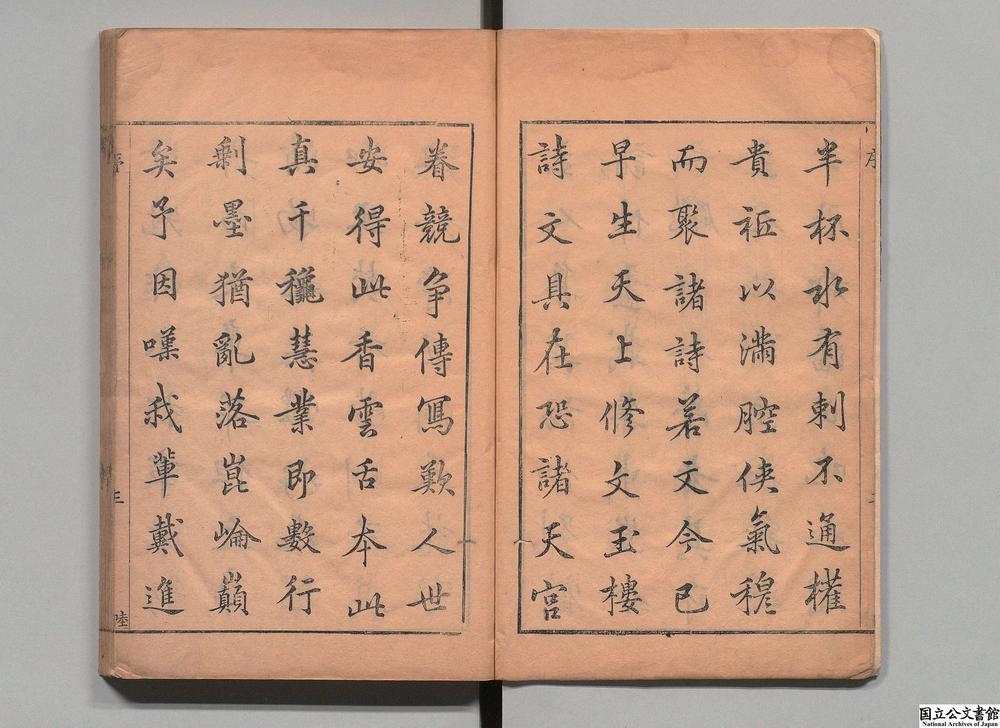 序
二
半杯水有刺不通權
貴祗以滿腔俠氣穆
而聚諸詩若文今已
早生天上修文玉樓
詩文具在恐諸天宮
眷競爭傳寫歎人世
安得此香雲舌本此
真千穠慧業即數行
剩墨猶亂落崑崙巔
矣予因嘆我輩戴進
序
三
陸
国立公文書館
National Archives of Japan